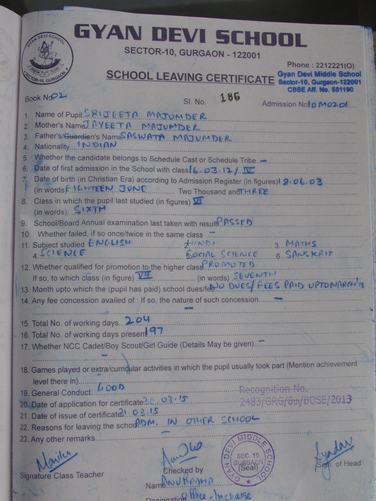 GYAN DEVI SCHOOL
SECTOR-10, GURGAON - 122001
Phone : 2212221(O)
SCHOOL LEAVING CERTIFICATE
Gyan Devi Middle School
Sector-10, Gurgaon-122001
CBSE Aff. No. 531190
Book No. 02 Sl. No. 186 Admission No. 10M0201
1. Name of Pupil SRIJEETA MAJUMDER
2. Mother's Name JAYEETA MAJUMDER
3. Father's/Guardian's Name SASWATA MAJUMDER
4. Nationality INDIAN
5. Whether the candidate belongs to Schedule Cast or Schedule Tribe –
6. Date of first admission in the School with class 16.03.12/ IV
7. Date of birth (in Christian Era) according to Admission Register (in figures) 18.06.03
(in words) JUNE Two Thousand and THREE
8. Class in which the pupil last studied (in figures) VI
(in words) SIXTH
9. School/Board Annual examination last taken with result PASSED
10. Whether failed, if so once/twice in the same class –
11. Subject studied 1. ENGLISH 2. HINDI 3. MATHS
4. SCIENCE 5. SOCIAL SCIENCE 6. SANSKRIT
12. Whether qualified for promotion to the higher class PROMOTED
If so, to which class (in figure) VII (in words) SEVENTH
13. Month upto which the (pupil has paid) school dues/fees NO DUES/FEES PAID UPTO MARCH'15
14. Any fee concession availed of : If so, the nature of such concession –
15. Total No. of working days 204
16. Total No. of working days present 197
17. Whether NCC Cadet/Boy Scout/Girl Guide (Details may be given) –
18. Games played or extra/curricular activities in which the pupil usually took part (Mention achievement
level there in)
19. General Conduct GOOD
Recognition No.
20. Date of application for certificate 20.03.15
21. Date of issue of certificate 21.03.15
22. Reasons for leaving the school ADM. IN OTHER SCHOOL
23. Any other remarks
GYAN DEVI MIDDLE SCHOOL
SEC. 10
GURGAON
(Seal)
Signature Class Teacher
Checked by
Sign of Head
Name ANUPAMA
Designation Office-Incharge